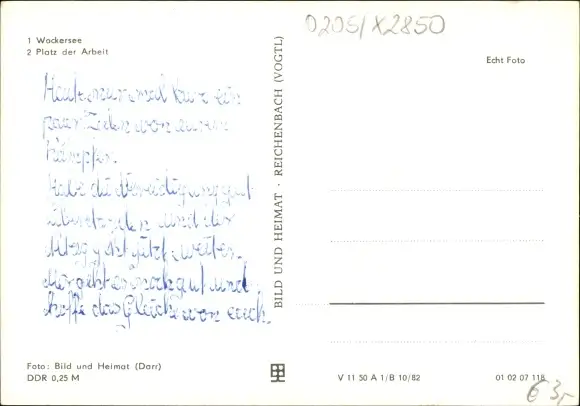 0205/X2850
1 Wockersee
2 Platz der Arbeit
Echt Foto
Heute nur mal kurz ein
paar Zeilen von eurem
Kämpfer.
Habe die Vereidigung gut
überstanden und der
Alltag geht jetzt weiter.
Mir geht es noch gut und
hoffe das Gleiche von euch.
BILD UND HEIMAT · REICHENBACH (VOGTL)
Foto: Bild und Heimat (Darr)
DDR 0,25 M
V 11 50 A 1/B 10/82
01 02 07 118
€ 3,-